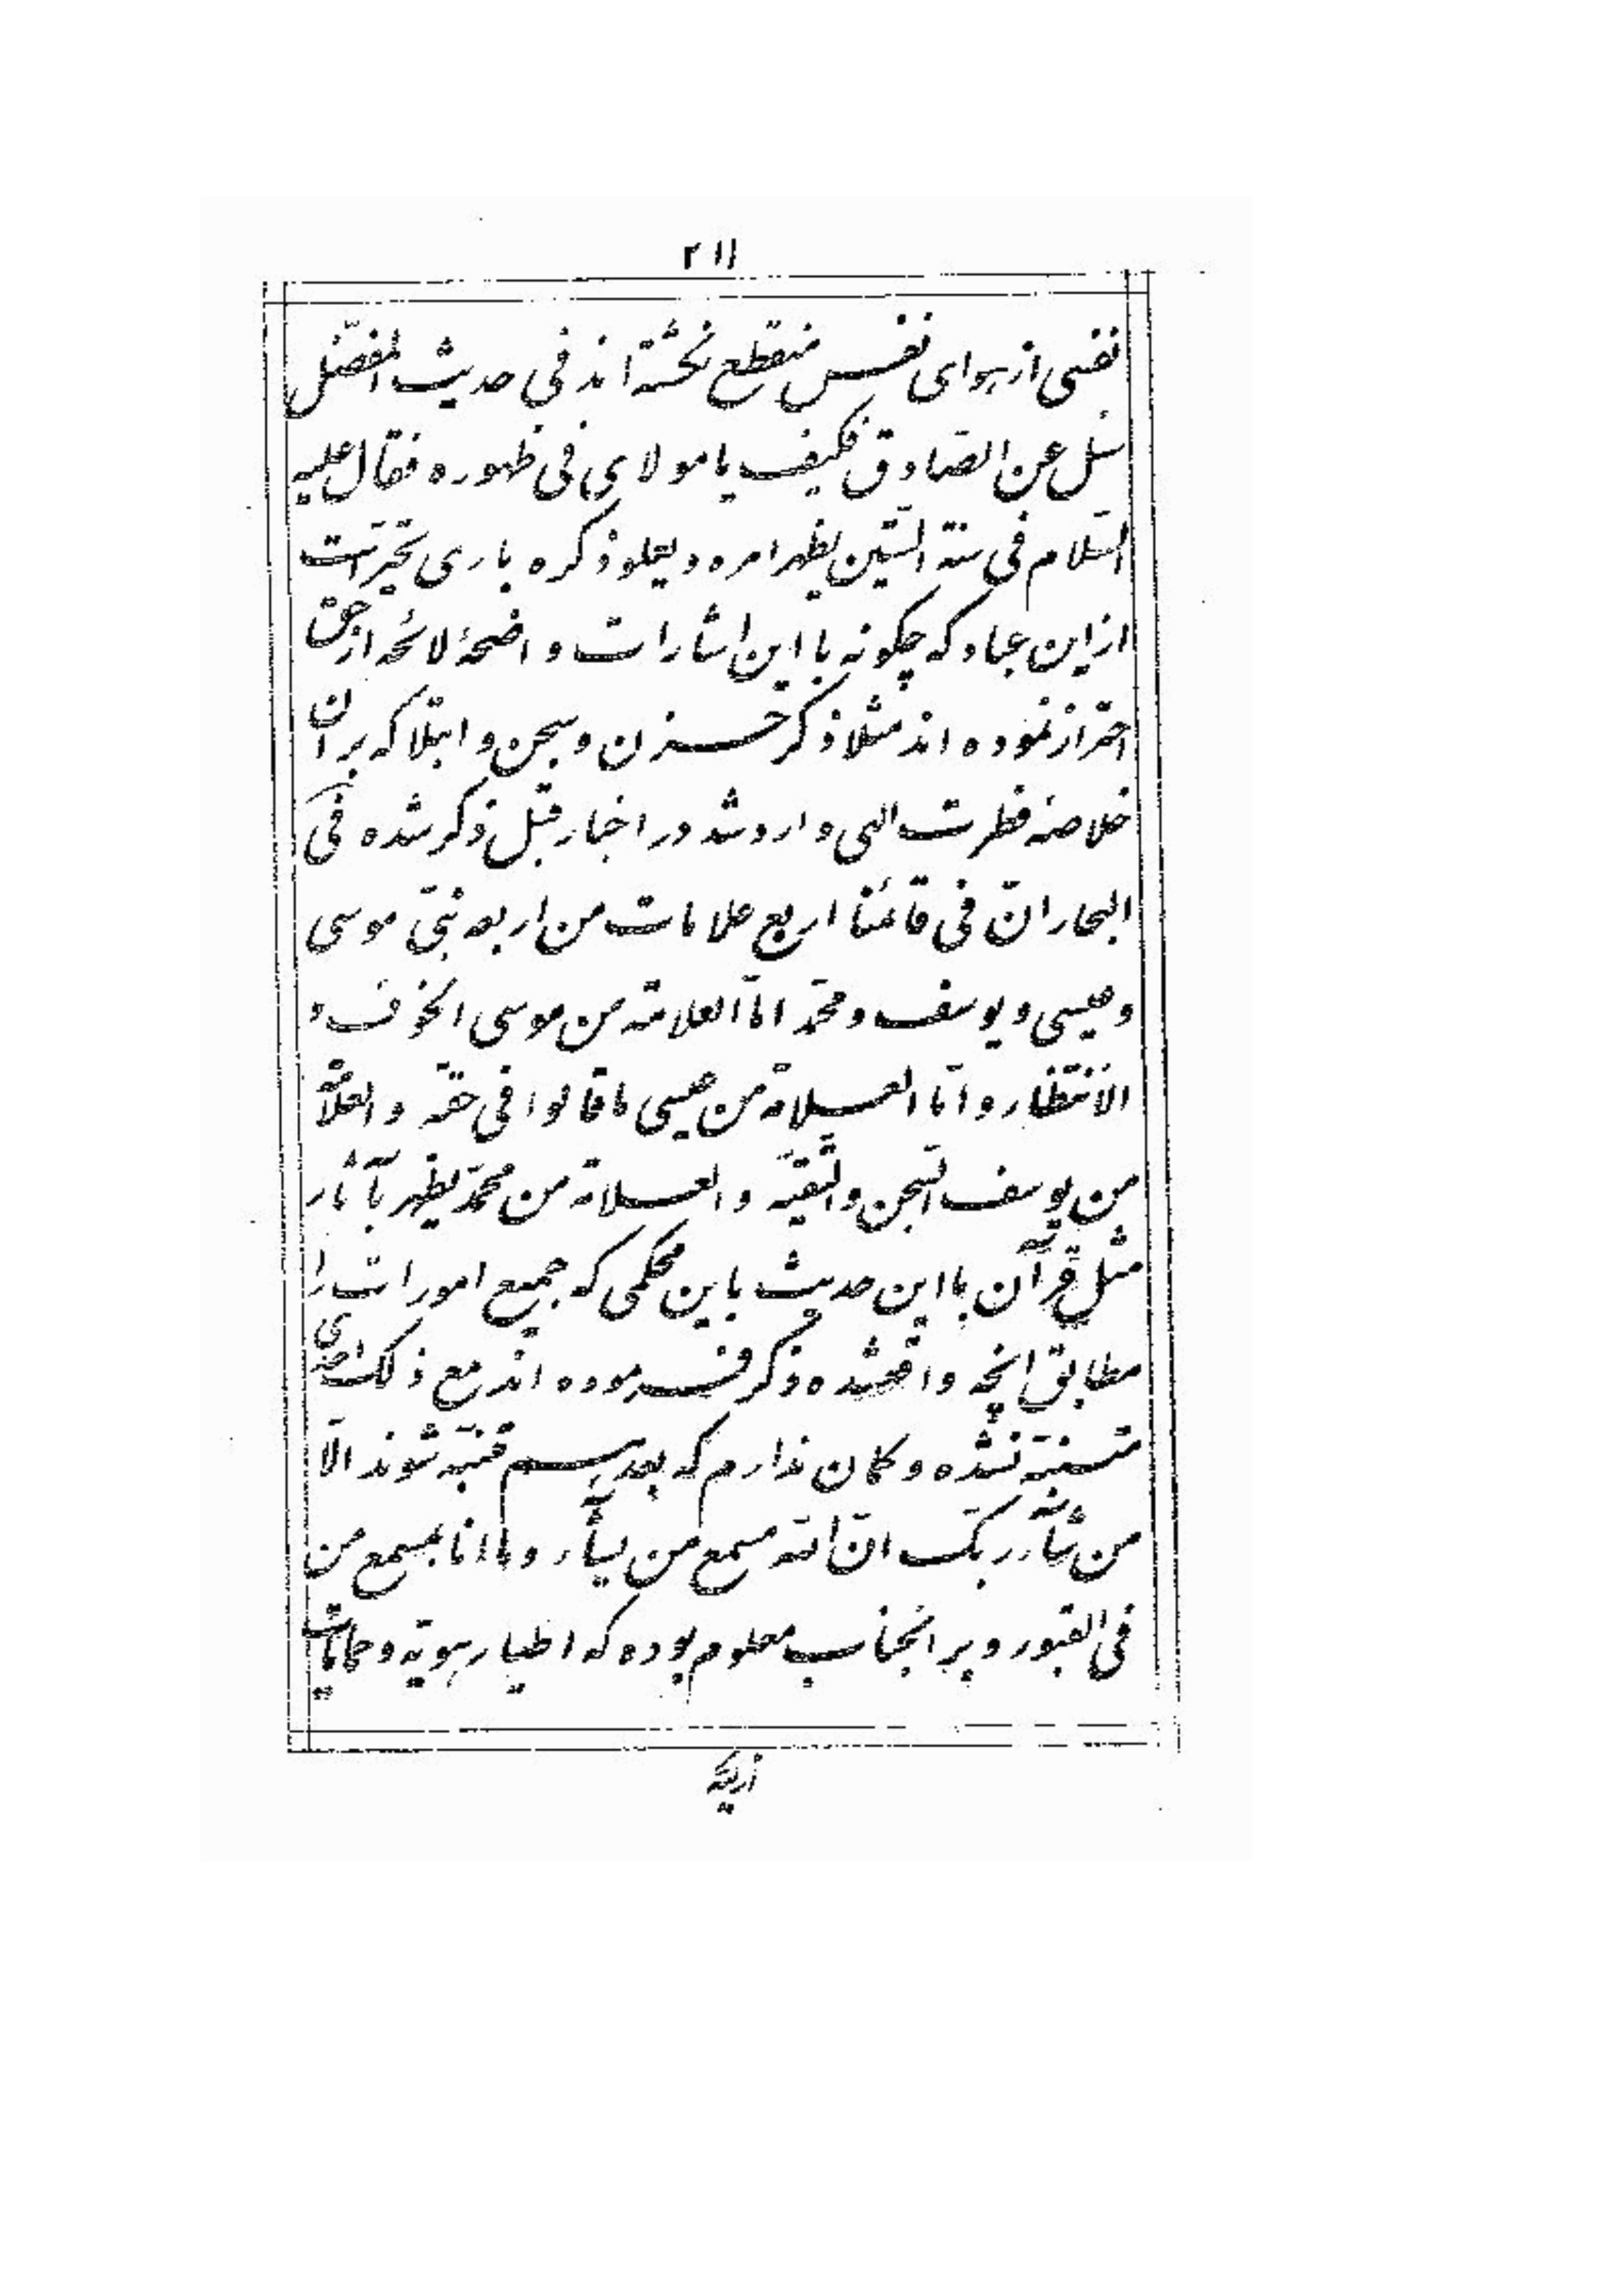 ٢١١
نفسی از هوای نفس منقطع نگشته‌اند فی حدیث المفضّل
سئل عن الصّادق فکیف یا مولای فی ظهوره فقال علیه
السّلام فی سنة السّتّین یظهر امره و یعلو ذکره باری تحیّر است
از این عباد که چگونه با این اشارات واضحهٔ لائحه از حق
احتراز نموده اند مثلا ذکر حزن و سجن و ابتلا که بر ان
خلاصه فطرت الهی وارد شد در اخبار قبل ذکر شده فی
البحار انّ فی قائمنا اربع علامات من اربعه نبیّ موسی
و عیسی و یوسف و محمّد امّا العلامة من موسی الخوف و
الانتظار و امّا العلامة من عیسی ما قالوا فی حقّه و العلامة
من یوسف السّجن و التّقیّه و العلامة من محمّد یظهر بآثار
مثل قرآن با این حدیث باین محکمی که جمیع امورات را
مطابق انچه واقع شده ذکر فرموده اند مع ذلک احدی
متنبّه نشده و گمان ندارم که بعد هم متنبّه شوند الّا
من شآء ربّک انّ اللّه مسمع من یشآء و ما انا بمسمع من
فی القبور و بر انجناب معلوم بوده که اطیار هویّه و حمامات
ازلیّه